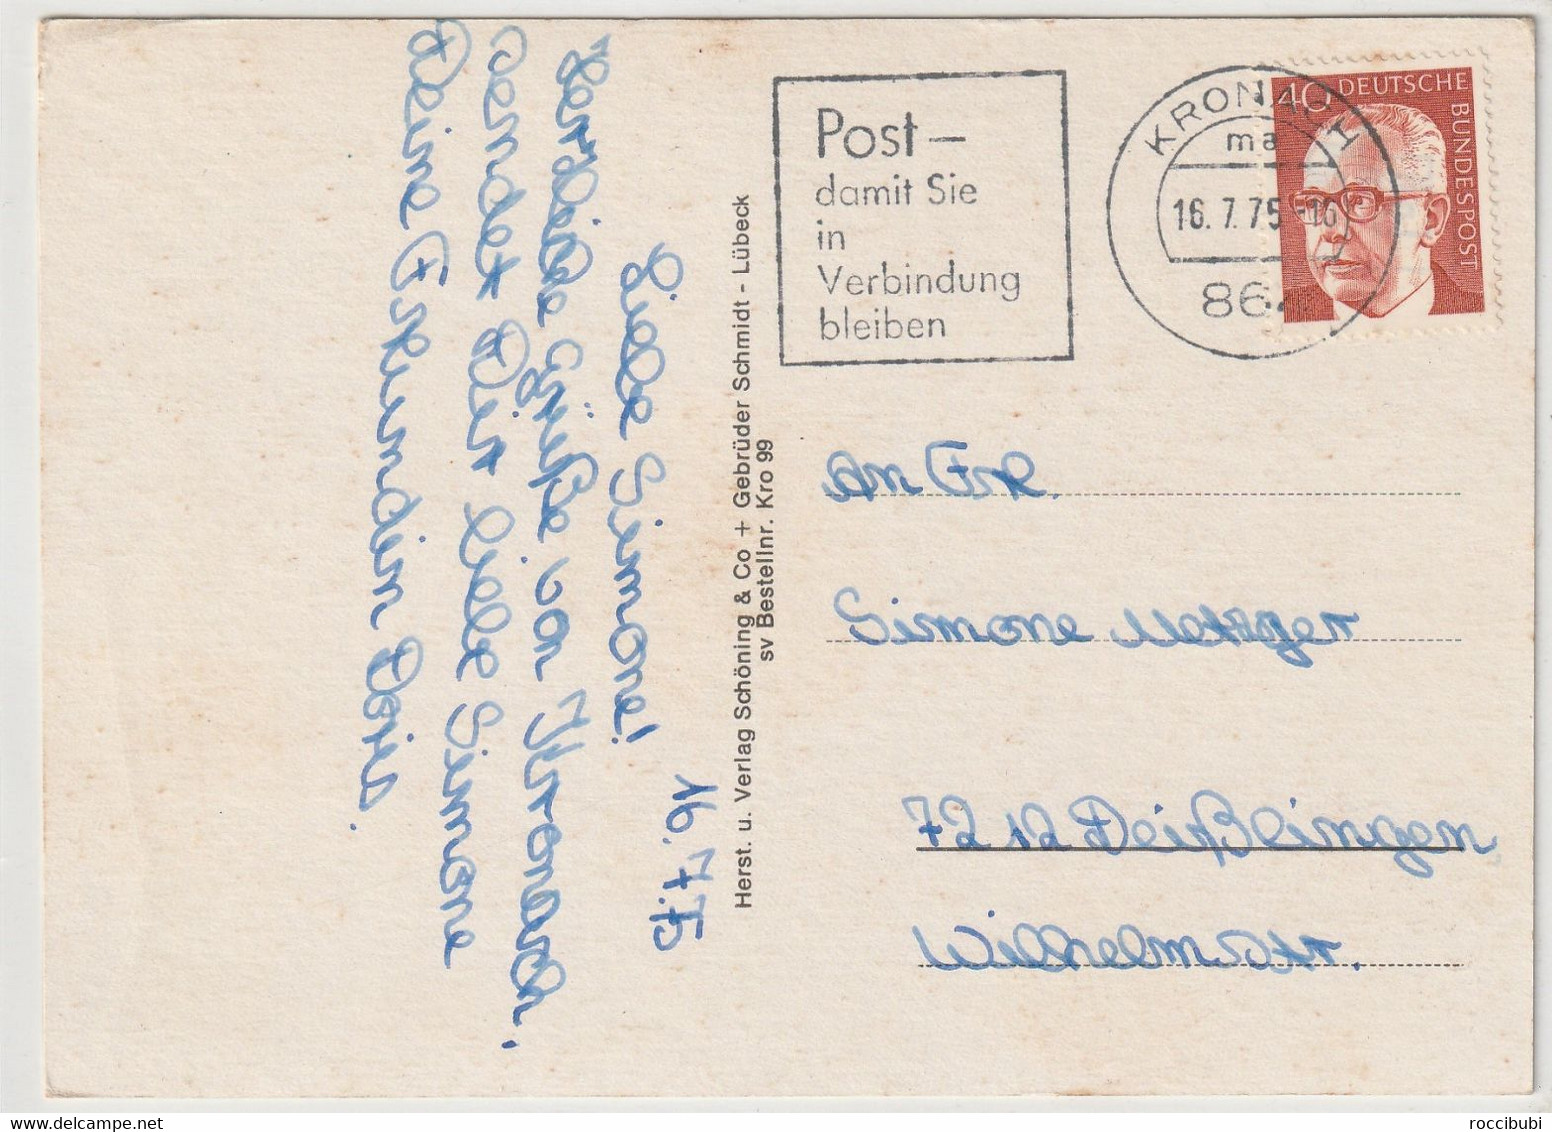 16. 7. 75
Liebe Simone!
Herzliche Grüße von Kronach.
sendet Dir liebe Simone
Deine Freundin Doris.
Herst. u. Verlag Schöning & Co + Gebrüder Schmidt - Lübeck
sv Bestellnr. Kro 99
Post –
damit Sie
in
Verbindung
bleiben
KRONACH 1
ma
16. 7. 75 -16
864
40 DEUTSCHE BUNDESPOST
An Frl.
Simone Metzger
7212 Deißlingen
Wilhelmstr.
roccibubi